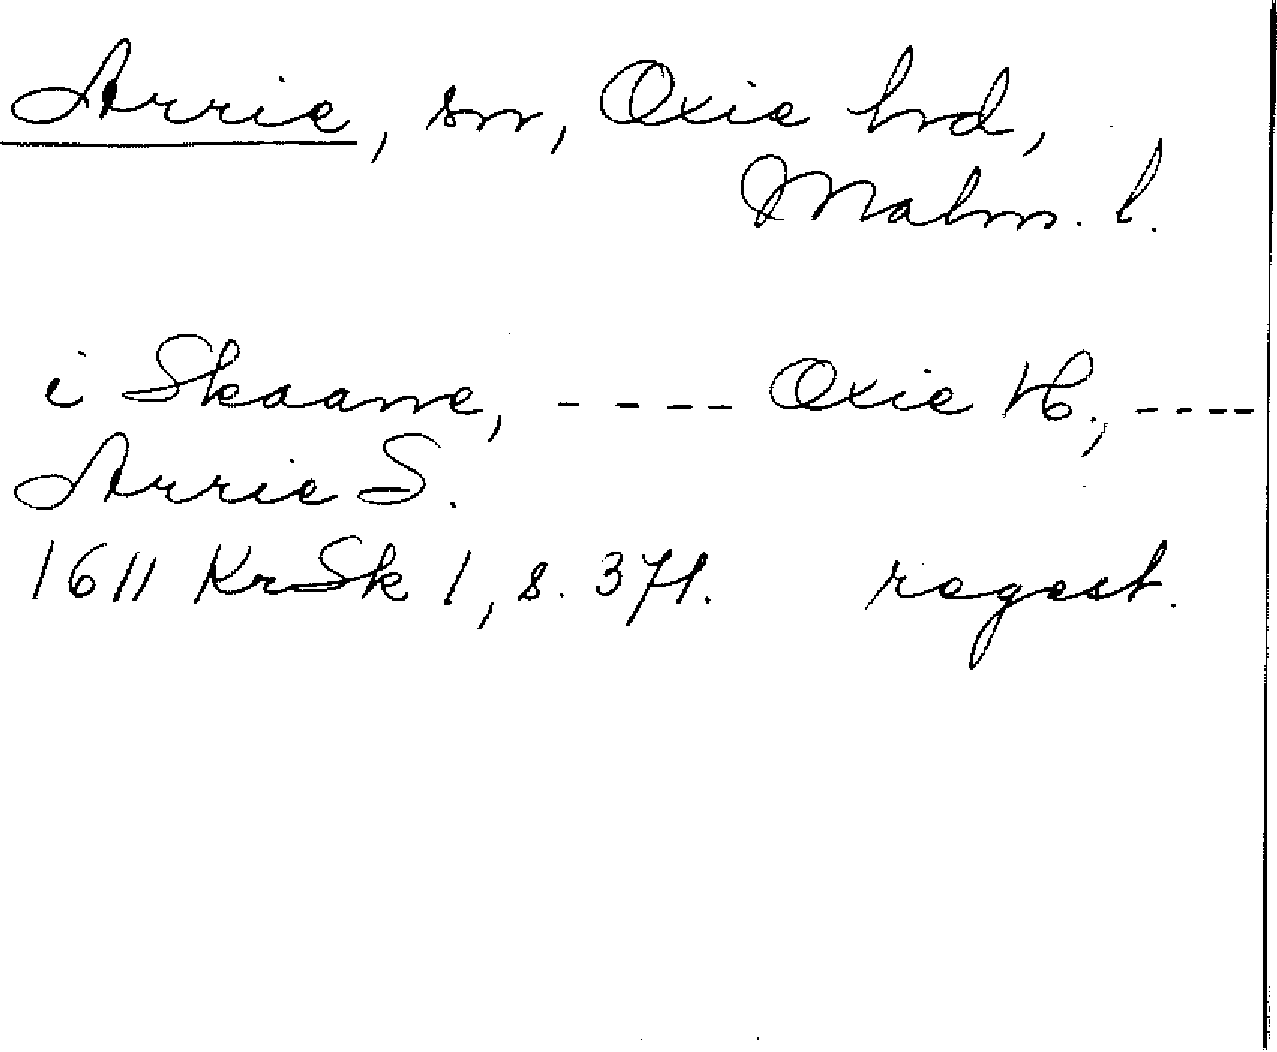 Arrie, sn, Oxie hrd,
Malm. l.
i Skaane, ---- Oxie H., ----
Arrie S.
1611 KrSk 1, s. 371. regest.